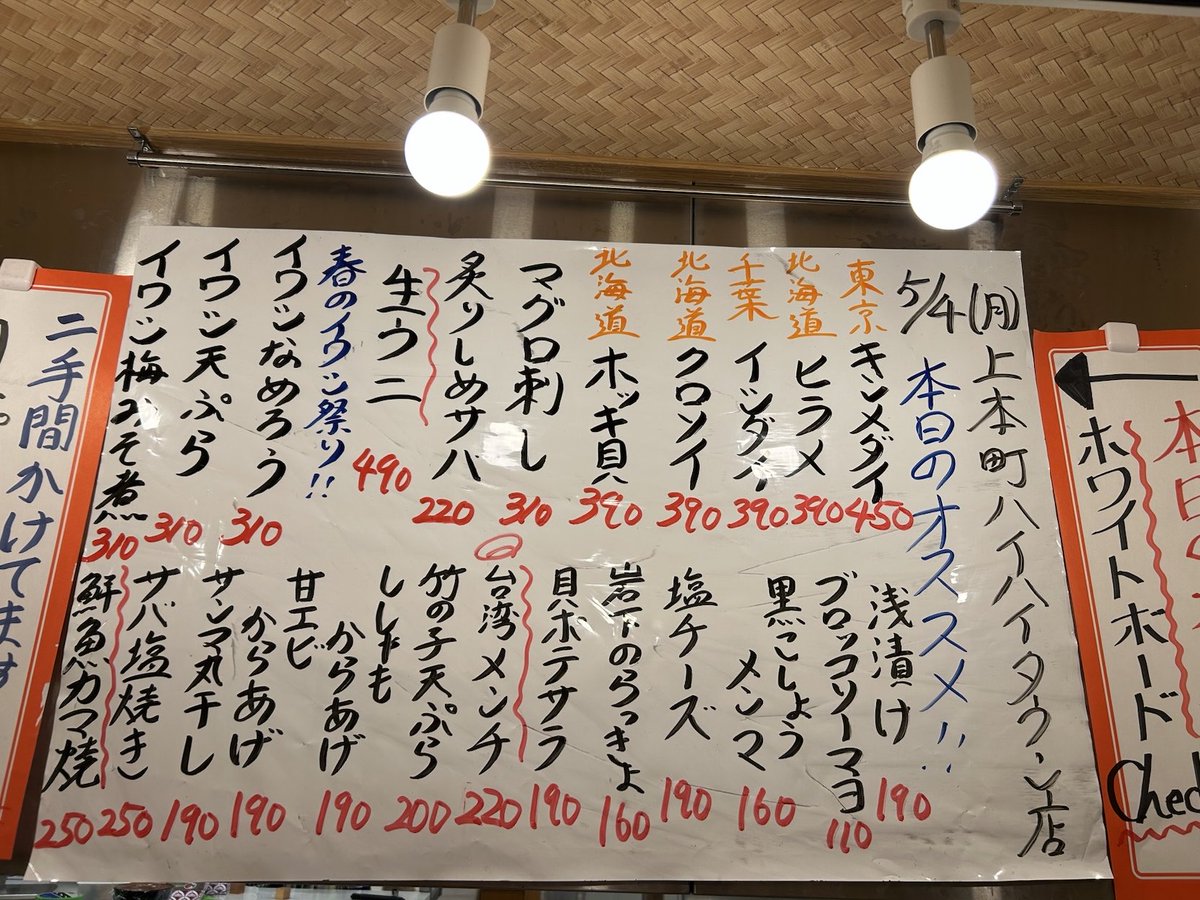 5/4(月)上本町ハイハイタウン店
本日のオススメ!!
東京 キンメダイ 450
北海道 ヒラメ 390
千葉 イシダイ 390
北海道 クロソイ 390
北海道 ホッキ貝 390
マグロ刺し 310
炙りしめサバ 220
生ウニ 490
春のイワシ祭り!!
イワシなめろう 310
イワシ天ぷら 310
イワシ梅みそ煮 310
浅漬け 190
ブロッコリーマヨ 110
黒こしょう
メンマ 160
塩チーズ 190
岩下のらっきょ 160
貝ホテサラ 190
台湾メンチ 220
竹の子天ぷら 200
ししゃも
からあげ 190
甘エビ
からあげ 190
サンマ丸干し 190
サバ塩焼き 250
鮮魚カマ焼 250
二手間かけてます
ホワイトボード